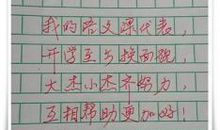 我的语文课代表，
开学至今换面貌，
大杰小杰齐努力，
互相帮助更加好！